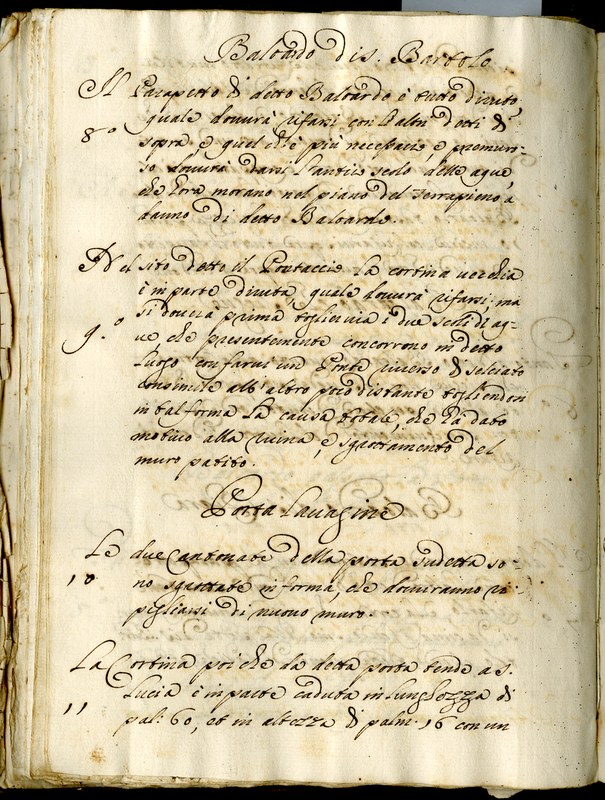 Baloardo di s. Bartolo
Il Parapetto di detto Baloardo è tutto diruto,
quale dovurà rifarsi con l'altri detti di
8.º
sopra e quel ch'è più necessario, e premuro-
so dovurà darsi l'antico scolo delle aque,
che hora morano nel piano del Terrapieno à
danno di detto Baloardo.
Nel sito detto il Portaccio la cortina vecchia
è in parte diruta, quale dovurà rifarsi, mà
si dovera prima togliervia i due scoli di aq-
9.º
ue che presentemente concorrono in detto
luogo con farvi un Ponte riverso di selciato
consimile all'altro poco distante togliendosi
in tal forma la causa totale, che hà dato
motivo alla ruina, e sgrottamento del
muro patito.
Porta Lavagine
Le due Cantonate della porta sudetta so-
10
no sgrottate in forma, che doviranno ri-
pigliarsi di nuovo muro.
La Cortina poi che da detta porta tende a S.
Lucia è in parte caduta in lunghezza di
11
pal: 60, et in altezza di palm: 16 con un